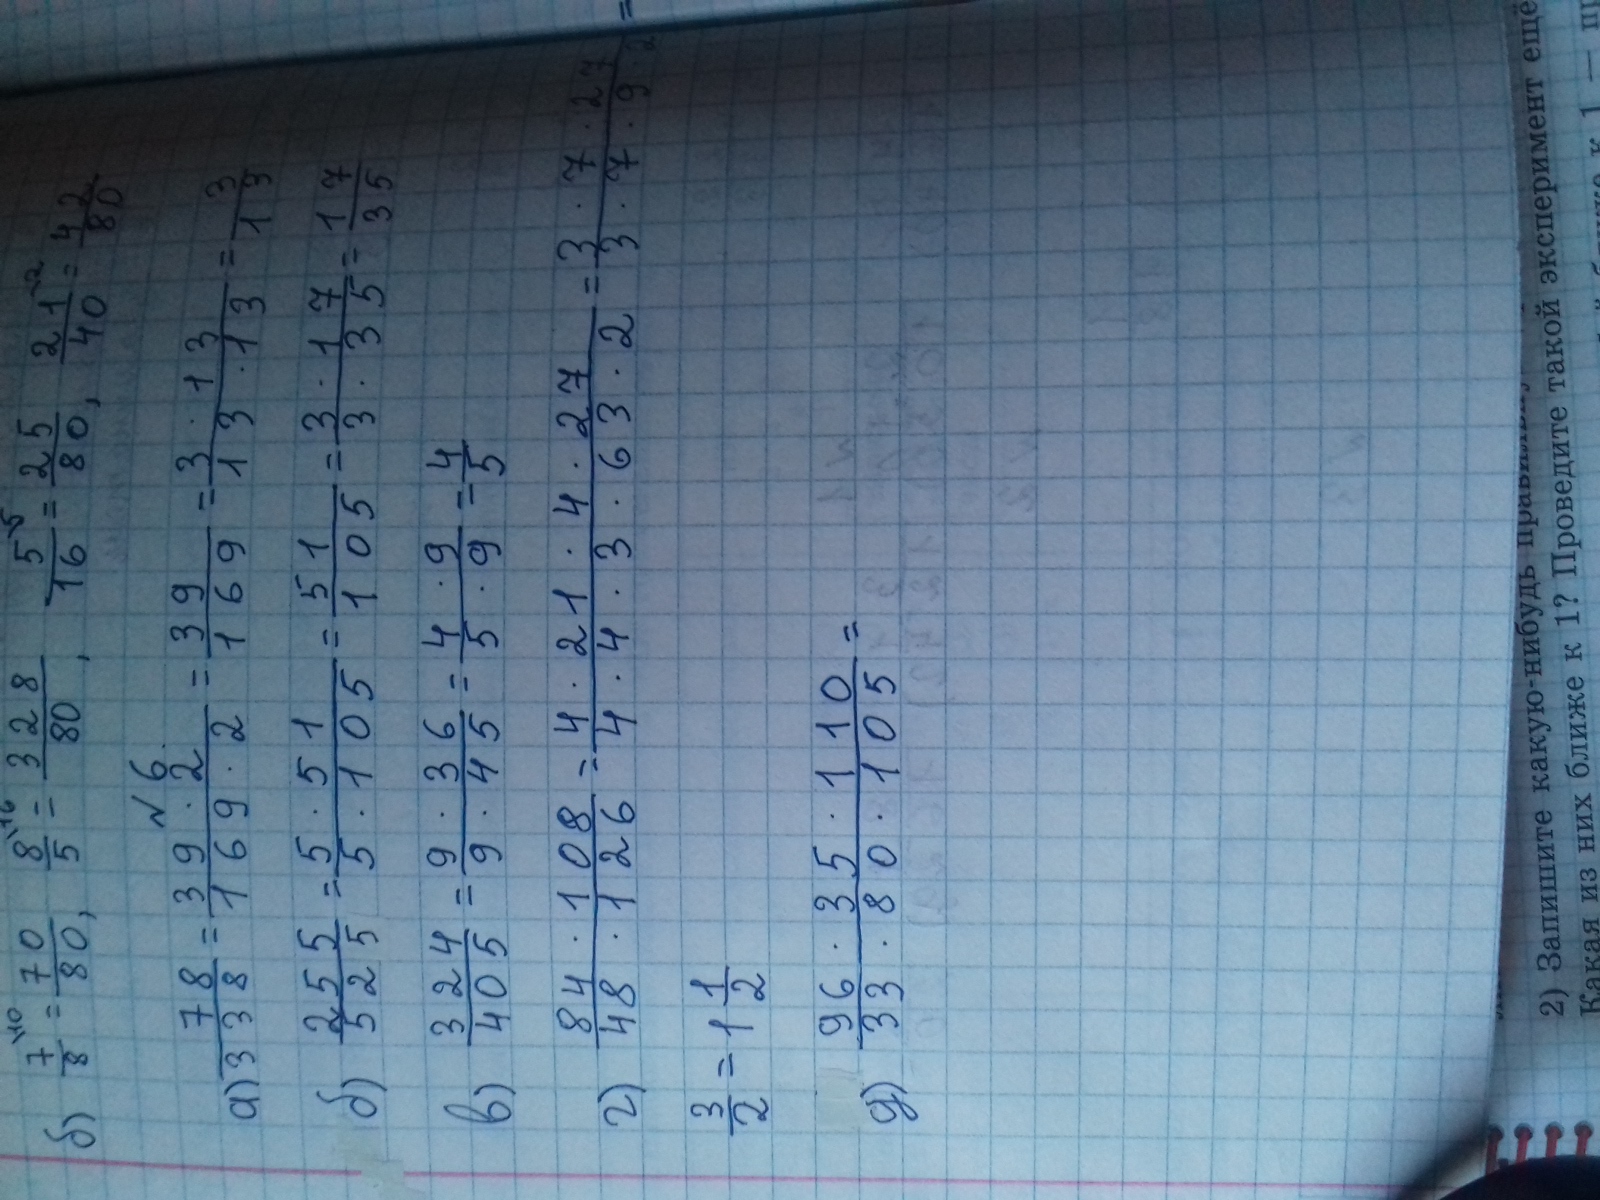 б) 7^10/8 = 70/80, 8^16/5 = 328/80, 5^5/16 = 25/80, 21^2/40 = 42/80
№6.
а) 78/338 = 39·2/169·2 = 39/169 = 3·13/13·13 = 3/13
б) 255/525 = 5·51/5·105 = 51/105 = 3·17/3·35 = 17/35
в) 324/405 = 9·36/9·45 = 4·9/5·9 = 4/5
г) 84·108/48·126 = 4·21·4·27/4·4·3·63·2 = 3·7·27/3·7·9·2 =
3/2 = 1 1/2
д) 96·35·110/33·80·105 =
2) Запишите какую-нибудь
Какая из них ближе к 1? Проведите такой эксперимент ещё
ближе к 1 —